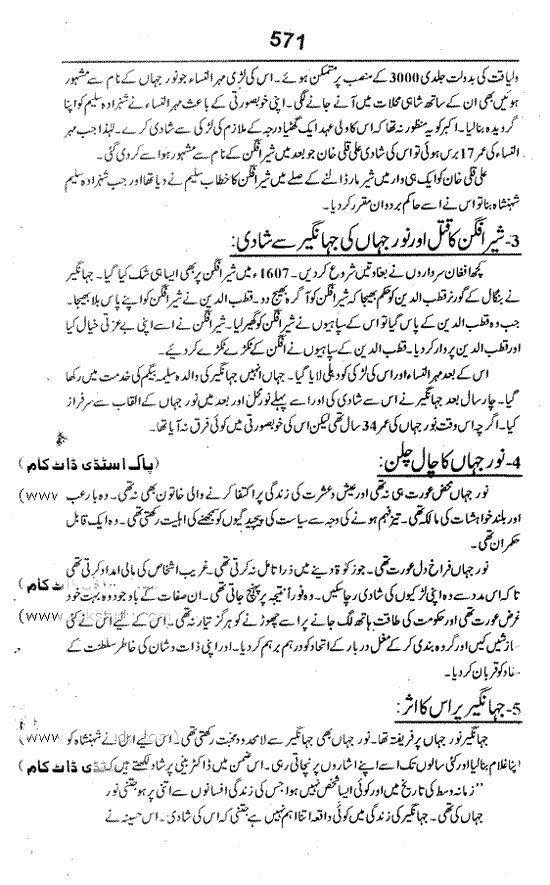 571
ولیاقت کی بدولت جلدی 3000 کے منصب پر متمکن ہوئے۔ اس کی لڑکی مہر النساء جو نور جہاں کے نام سے مشہور
ہوئیں بھی ان کے ساتھ شاہی محلات میں آنے جانے لگی۔ اپنی خوبصورتی کے باعث مہر النساء نے شہزادہ سلیم کو اپنا
گرویدہ بنا لیا۔ اکبر کو یہ منظور نہ تھا کہ اس کا ولی عہد ایک گھٹیا درجہ کے ملازم کی لڑکی سے شادی کرے۔ لہٰذا جب مہر
النساء کی عمر 17 برس ہوئی تو اس کی شادی علی قلی خان جو بعد میں شیر افگن کے نام سے مشہور ہوا سے کر دی گئی۔
علی قلی خان کو ایک ہی وار میں شیر مار ڈالنے کے صلے میں شیر افگن کا خطاب سلیم نے دیا تھا اور جب شہزادہ سلیم
شہنشاہ بنا تو اس نے اسے حاکم بردوان مقرر کر دیا۔
3- شیر افگن کا قتل اور نور جہاں کی جہانگیر سے شادی:
کچھ افغان سرداروں نے بغاوتیں شروع کر دیں۔ 1607ء میں شیر افگن پر بھی ایسا ہی شک کیا گیا۔ جہانگیر
نے بنگال کے گورنر قطب الدین کو حکم بھیجا کہ شیر افگن کو آگرہ بھیج دو۔ قطب الدین نے شیر افگن کو اپنے پاس بلا بھیجا۔
جب وہ قطب الدین کے پاس گیا تو اس کے سپاہیوں نے شیر افگن کو گھیر لیا۔ شیر افگن نے اسے اپنی بے عزتی خیال کیا
اور قطب الدین پر وار کر دیا۔ قطب الدین کے سپاہیوں نے افگن کے ٹکڑے ٹکڑے کر دیے۔
اس کے بعد مہر النساء اور اس کی لڑکی کو دہلی لایا گیا۔ جہاں انہیں جہانگیر کی والدہ سلیمہ بیگم کی خدمت میں رکھا
گیا۔ چار سال بعد جہانگیر نے اس سے شادی کی اور اسے پہلے نور محل اور بعد میں نور جہاں کے القاب سے سرفراز
کیا۔ اگرچہ اس وقت نور جہاں کی عمر 34 سال تھی لیکن اس کی خوبصورتی میں کوئی فرق نہ آیا تھا۔
4- نور جہاں کا چال چلن: (پاک اسٹڈی ڈاٹ کام)
نور جہاں محض عورت ہی نہ تھی اور عیش و عشرت کی زندگی پر اکتفا کرنے والی خاتون بھی نہ تھی۔ وہ بارعب (www
اور بلند خواہشات کی مالکہ تھی۔ تیز فہم ہونے کی وجہ سے سیاست کی پیچیدگیوں کو سمجھنے کی اہلیت رکھتی تھی۔ وہ ایک قابل
حکمران تھی۔
نور جہاں فراخ دل عورت تھی۔ جو زکوٰۃ دینے میں ذرا تامل نہ کرتی تھی۔ غریب اشخاص کی مالی امداد کرتی تھی
تاکہ اس مدد سے وہ اپنی لڑکیوں کی شادی رچا سکیں۔ وہ فوراً نتیجہ پر پہنچ جاتی تھی۔ ان صفات کے باوجود وہ بہت خود ڈاٹ کام)
غرض عورت تھی اور حکومت کی طاقت ہاتھ لگ جانے پر اسے چھوڑنے کو ہرگز تیار نہ تھی۔ اس کے لیے اس نے کئی (www
سازشیں کیں اور گروہ بندی کر کے مغل دربار کے اتحاد کو درہم برہم کر دیا۔ اور اپنی ذات و شان کی خاطر سلطنت کے
مفاد کو قربان کر دیا۔
5- جہانگیر پر اس کا اثر:
جہانگیر نور جہاں پر فریفتہ تھا۔ نور جہاں بھی جہانگیر سے لامحدود محبت رکھتی تھی۔ اس لیے اس نے شہنشاہ کو (www
اپنا غلام بنا لیا اور کئی سالوں تک اسے اپنے اشاروں پر نچاتی رہی۔ اس ضمن میں ڈاکٹر بینی پرشاد لکھتے ہیں ڈاٹ کام)
”زمانہ وسط کی تاریخ میں اور کوئی ایسا شخص نہیں ہوا جس کی زندگی افسانوں سے اتنی پر ہو جتنی نور
جہاں کی تھی۔ جہانگیر کی زندگی میں کوئی واقعہ اتنا اہم نہیں ہے جتنی کہ اس کی شادی۔ اس حسینہ نے